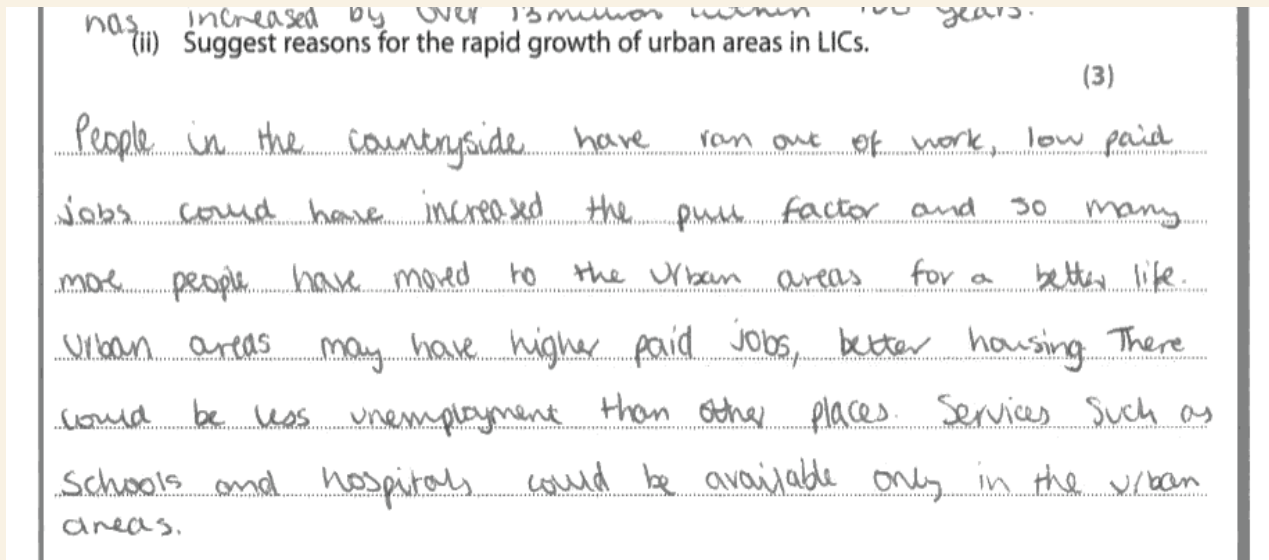 has increased by over 13 million within 100 years.
(ii) Suggest reasons for the rapid growth of urban areas in LICs.
(3)
People in the countryside have ran out of work, low paid
jobs could have increased the pull factor and so many
more people have moved to the urban areas for a better life.
Urban areas may have higher paid jobs, better housing. There
could be less unemployment than other places. Services such as
schools and hospitals could be available only in the urban
areas.